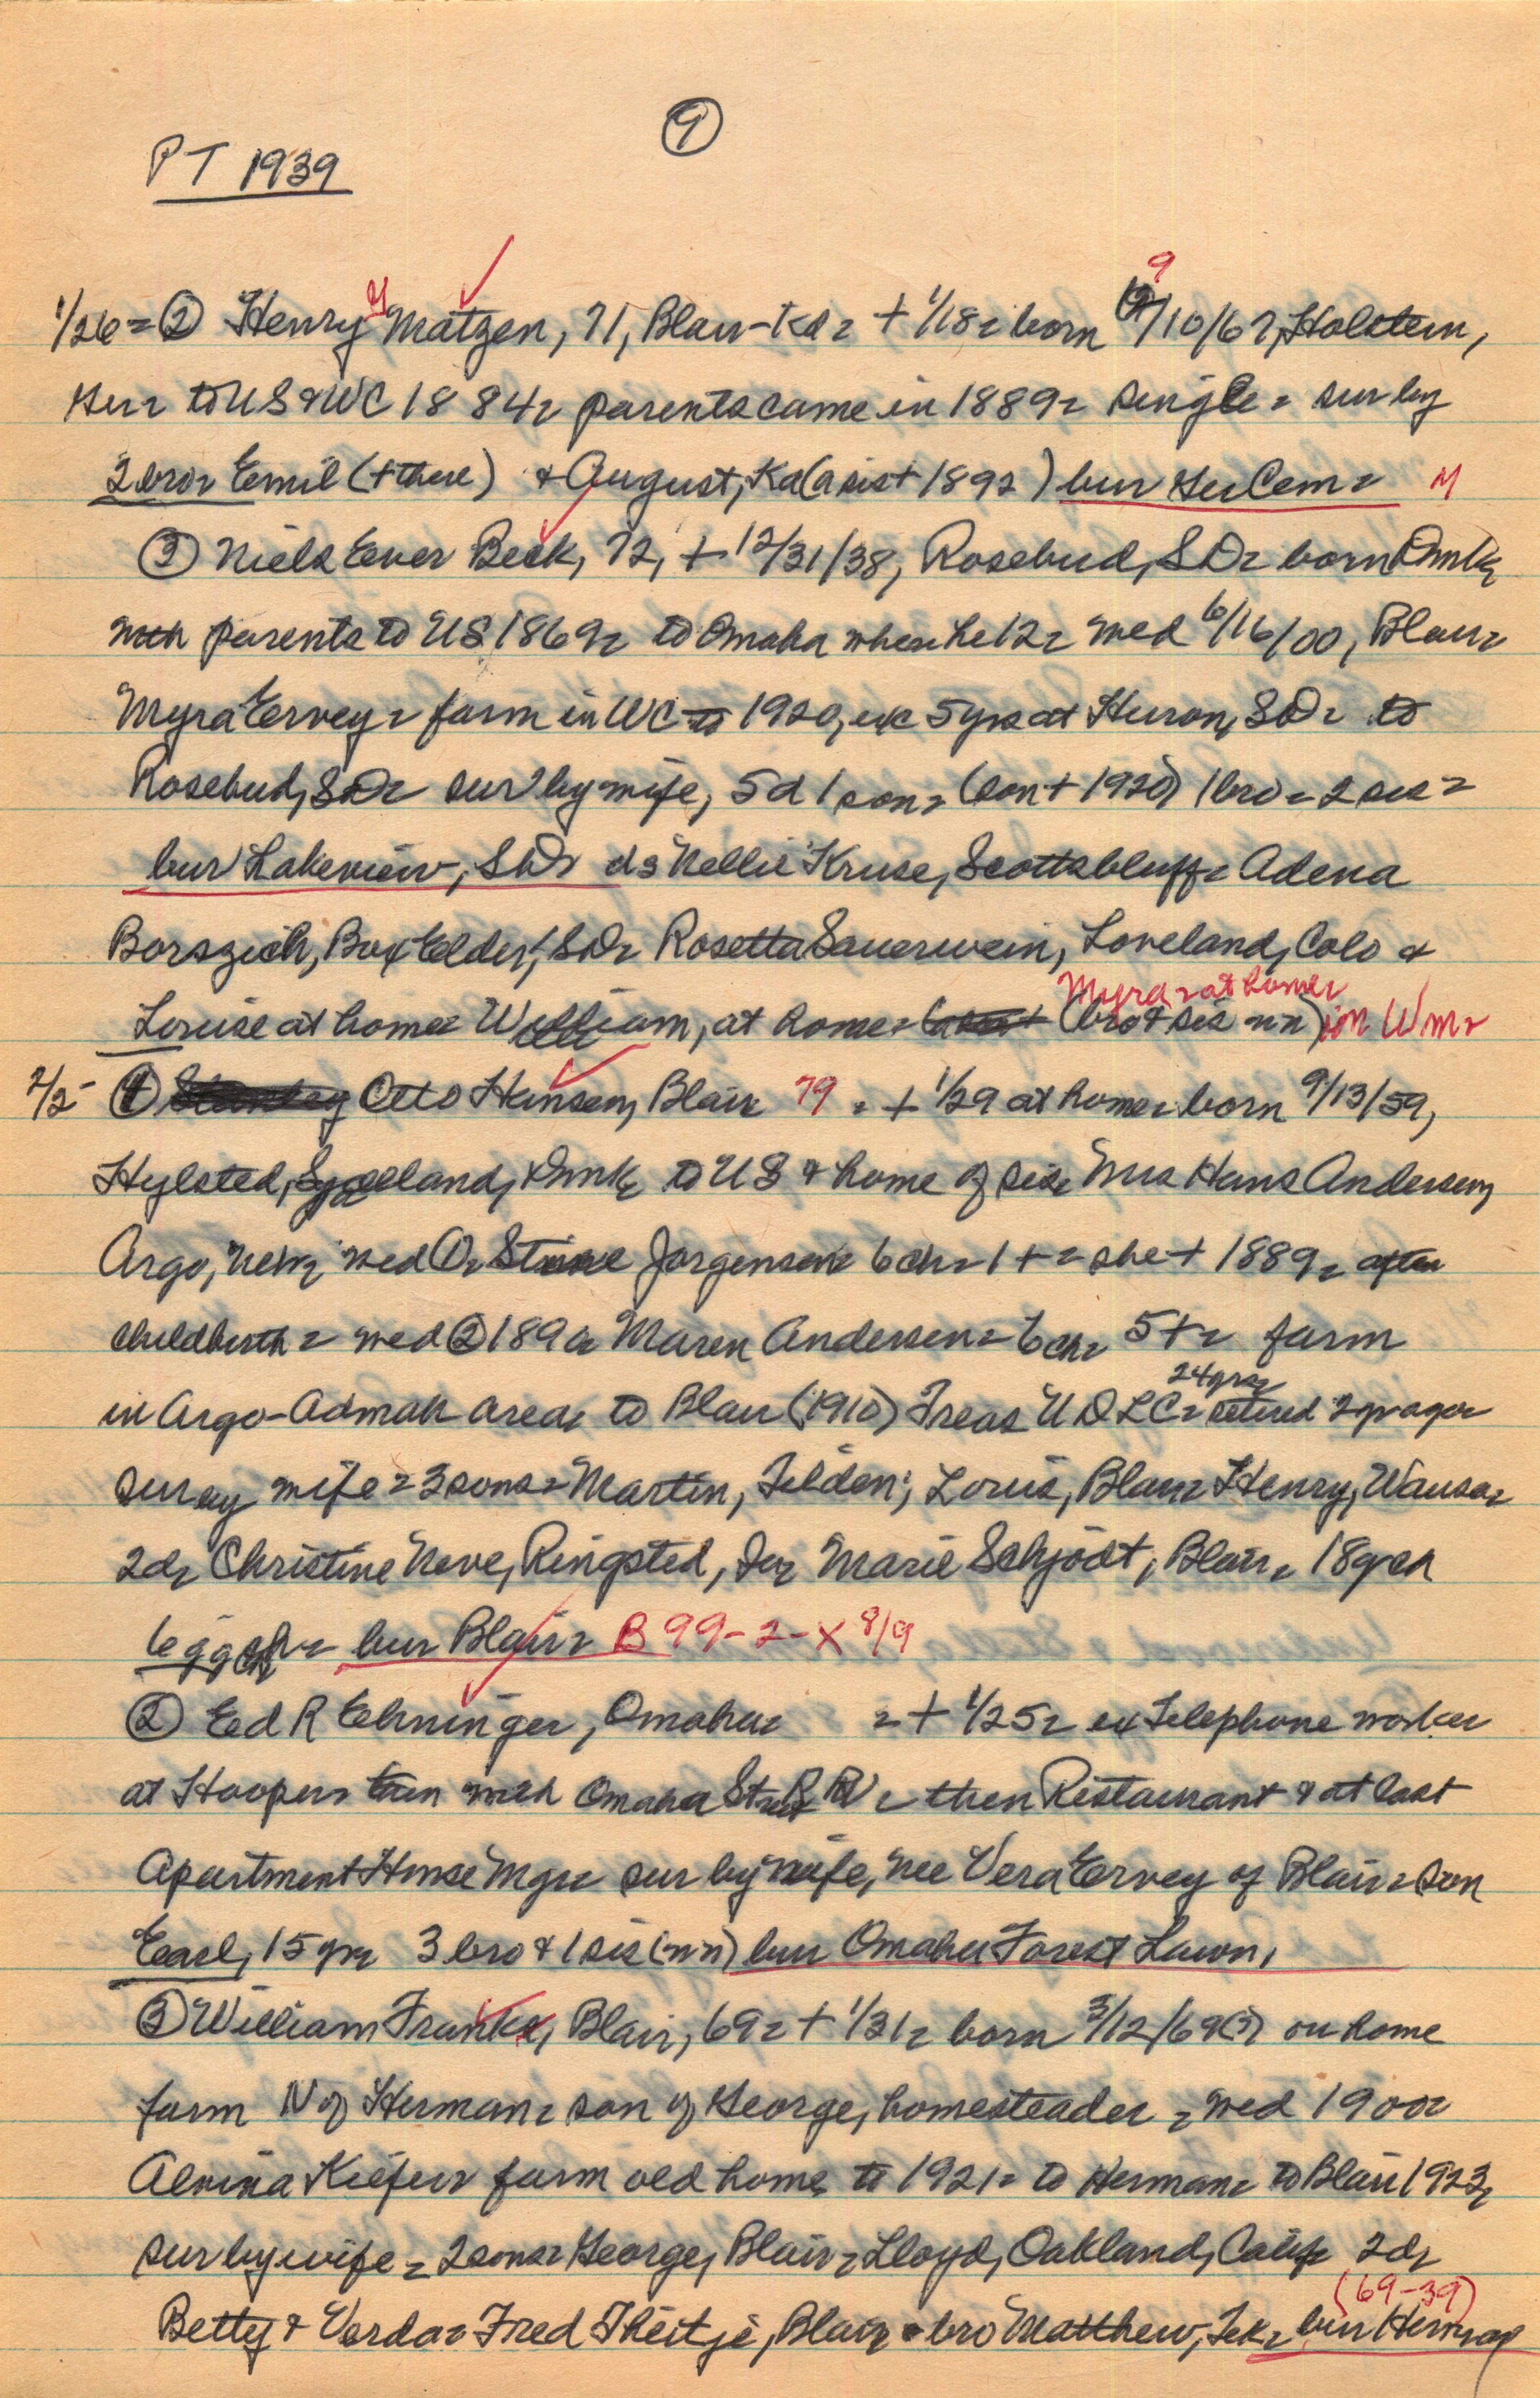 9
PT 1939
9
1/26 = ② Henry Y Matzen, 71, Blair - Kd = + 1/18 = born /10/67, Holstein,
Ger = to US & WC 1884 = parents came in 1889 = single = sur by
2 bro = Emil (+ there) & August, Ka (a sis + 1892) bur Ger Cem = M
③ Niels Ever Beck, 72, + 12/31/38, Rosebud, SD = born Dmk,
with parents to US 1869 = to Omaha when he 12 = med 6/16/00, Blair =
Myra Ervey = farm in WC to 1920, exc 5 yrs at Huron, SD = to
Rosebud, SD = sur by wife, 5 d 1 son = (son + 1920) 1 bro = 2 sis =
bur Lakeview, SD = ds Nellie Kruse, Scottsbluff = Adena
Borszich, Box Elder, SD = Rosetta Sauerwein, Loveland, Colo &
Myra = at home
Louise at home = William, at home = (bro & sis nn) Wm =
2/2 ① Otto Hansen, Blair 79 = + 1/29 at home = born 9/13/59,
Hylsted, Sjaelland, Dmk = to US & home of sis = Mrs Hans Andersen,
Argo, Neb = med ① Stine Jorgensen = 6 ch = 1 + = she + 1889 = after
childbirth = med ② 189 Maren Andersen = 6 ch = 5 + = farm
24 yrs
in Argo - Admah area = to Blair (1910) Treas U D L C = retired 2 yr ago =
sur by wife = 3 sons = Martin, Tilden; Louis, Blair = Henry, Wausa =
2 d = Christine Neve, Ringsted, Ia = Marie Schjodt, Blair = 18 gch
6 ggch = bur Blair = B 99-2-X 8/9
② Ed R Ehninger, Omaha = = + 1/25 = ex Telephone worker
at Hooper = then with Omaha Street RR = then Restaurant & at last
Apartment House Mgr = sur by wife, nee Vera Ervey of Blair = son
Earl, 15 yr = 3 bro & 1 sis (nn) bur Omaha Forest Lawn,
③ William Franke, Blair, 69 = + 1/31 = born 3/12/69(?) on home
farm N of Herman = son of George, homesteader = med 1900 =
Alvina Kiefer = farm old home to 1921 = to Herman = to Blair 1923,
sur by wife = 2 sons = George, Blair = Lloyd, Oakland, Calif = 2 d =
(69-39)
Betty & Verda = Fred Theitje, Blair = bro Matthew, Tek = bur Herman